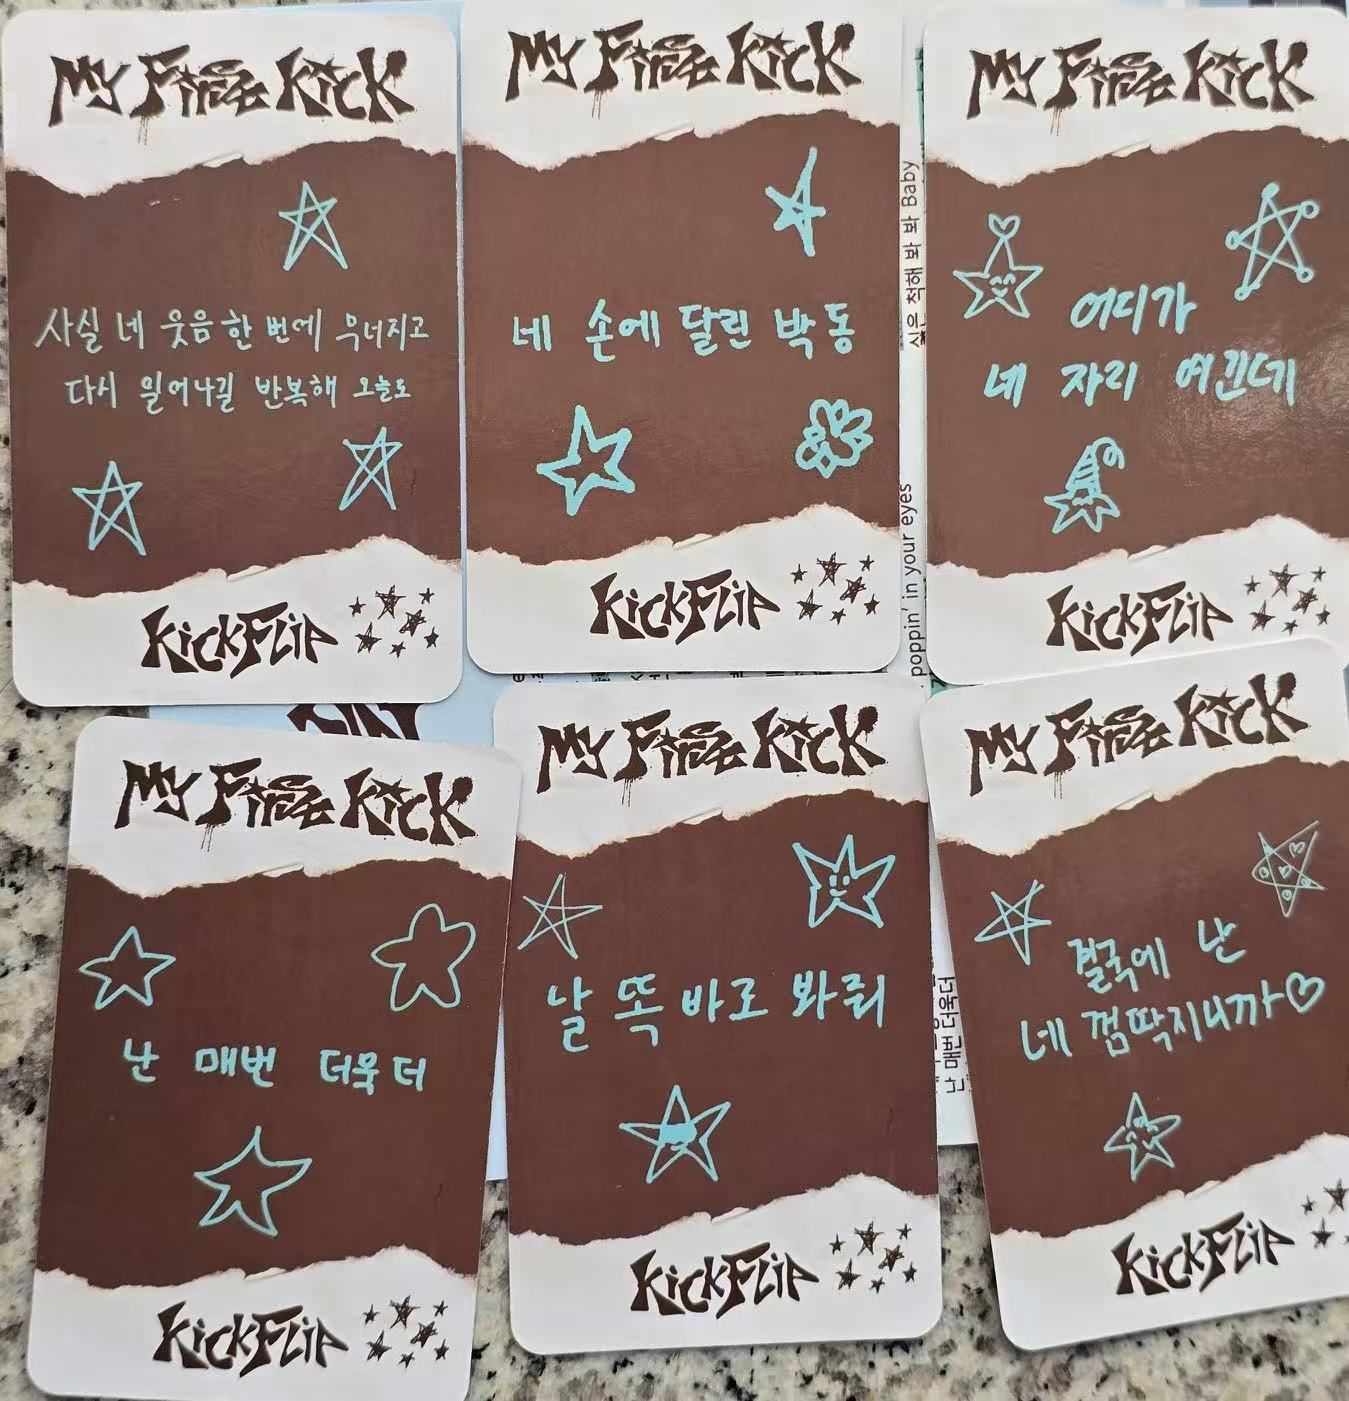 My First Kick
사실 네 웃음 한 번에 무너지고
다시 일어나길 반복해 오늘도
KickFlip
My First Kick
네 손에 달린 박동
KickFlip
My First Kick
어디가
네 자리 여긴데
KickFlip
싶은 척해 봐 봐 Baby
poppin' in your eyes
My First Kick
난 매번 더욱 더
KickFlip
My First Kick
날 똑바로 봐줘
KickFlip
My First Kick
결국에 난
네 껌딱지니까♡
KickFlip
난 매번 더욱더